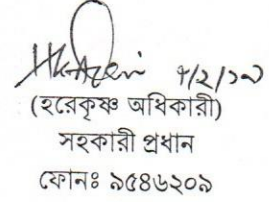 (হরেকৃষ্ণ অধিকারী)
সহকারী প্রধান
ফোনঃ ৯৫৪৬২০৯